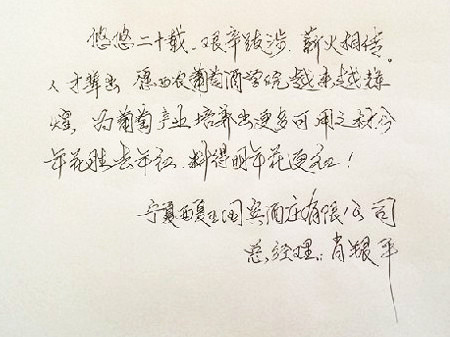 悠悠二十载、艰辛跋涉、薪火相传。
人才辈出 愿西农葡萄酒学院越来越辉
煌，为葡萄产业培养出更多可用之材 今
年花胜去年红 料得明年花更红！
宁夏西夏王国宾酒庄有限公司
总经理：肖银平